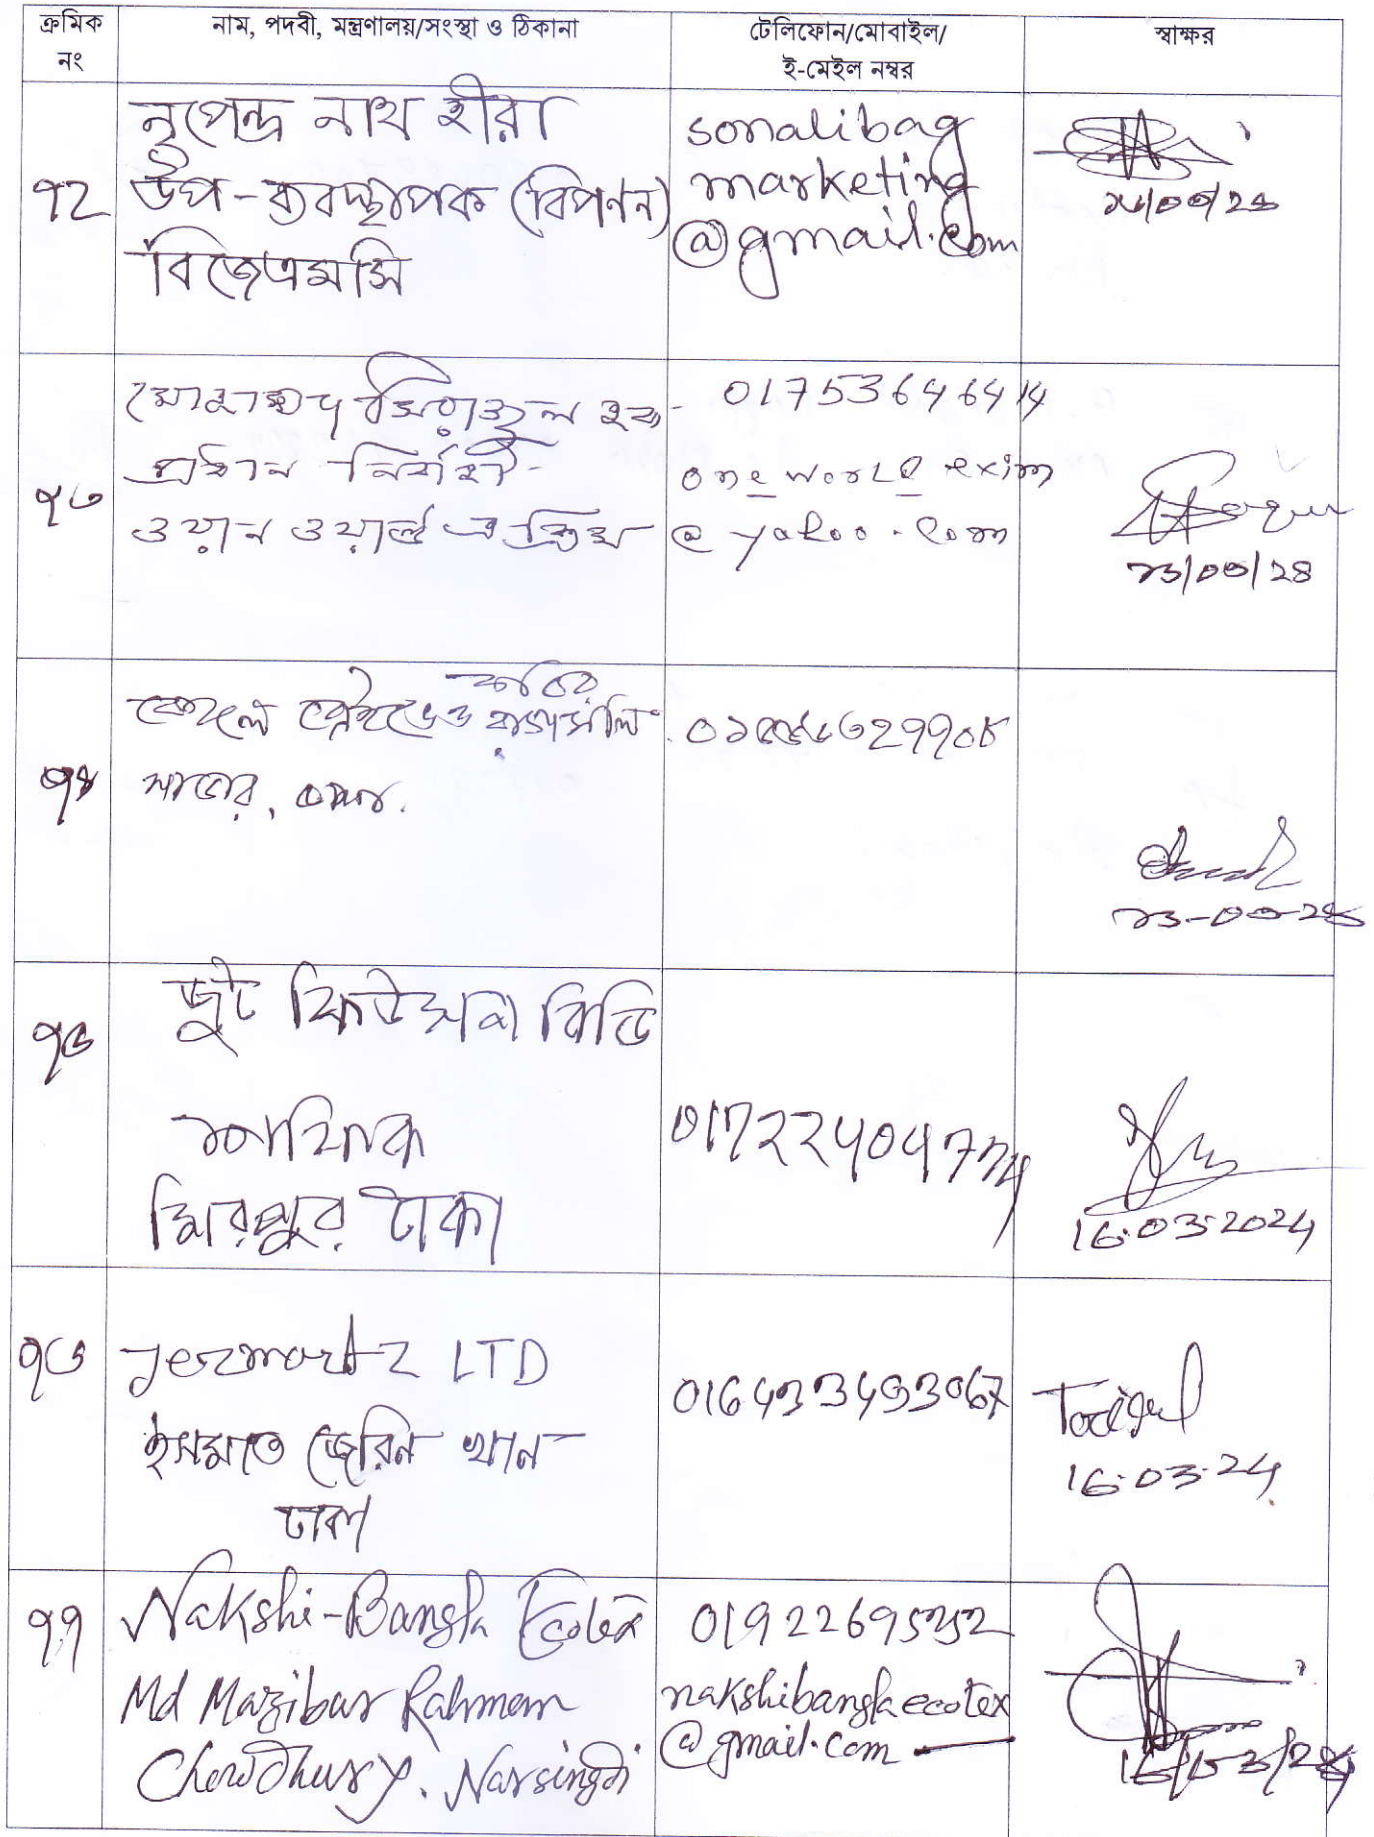 ক্রমিক নং
নাম, পদবী, মন্ত্রণালয়/সংস্থা ও ঠিকানা
টেলিফোন/মোবাইল/
ই-মেইল নম্বর
স্বাক্ষর
৭২
নৃপেন্দ্র নাথ হীরা
উপ-ব্যবস্থাপক (বিপণন)
বিজেএমসি
sonalibag
marketing
@gmail.com
৭৩
মোহাম্মদ হক
প্রধান নির্বাহী
ওয়ান ওয়ার্ল্ড এক্সিম
01753646414
one world exim
@yahoo.com
১৬/০৩/২৪
৭৪
সাভার, ঢাকা.
১৬-০৩-২৪
৭৫
জুট ফিউশন বিডি
মিরপুর ঢাকা
16.03.2024
৭৬
LTD
ইসমাত জেরিন খান
ঢাকা
016433493067
16.03.24
৭৭
Nakshi-Bangla Ecotex
Md Mazibur Rahman
Chowdhury. Narsingdi
01922695252
nakshibanglaecotex
@gmail.com